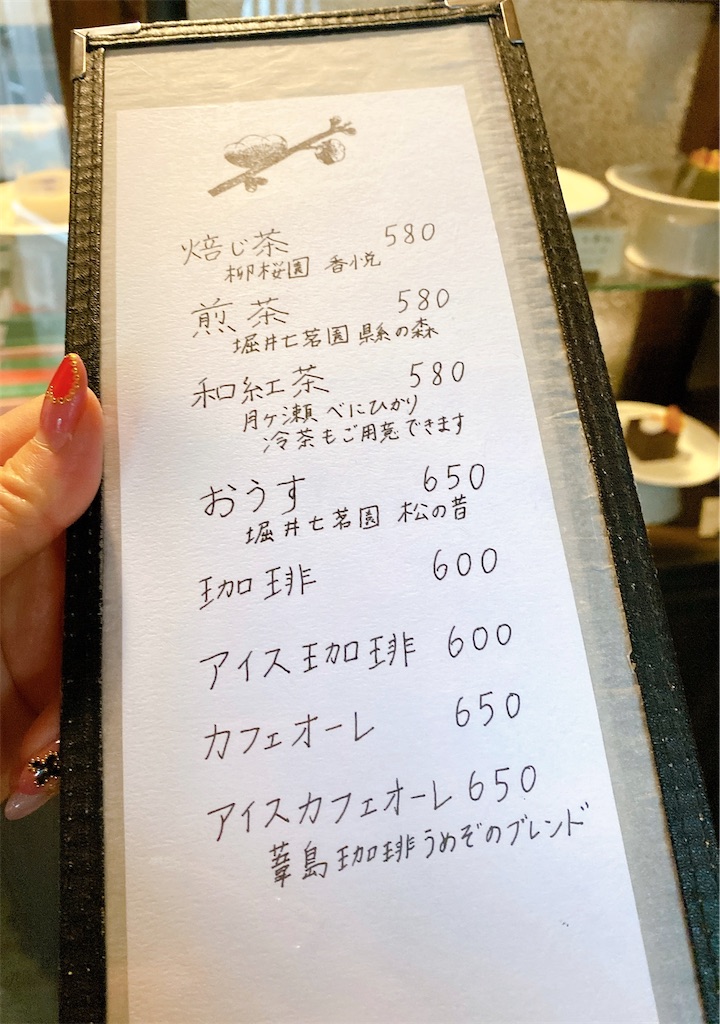 焙じ茶 580
柳桜園 香悦
煎茶 580
堀井七茗園 縣の森
和紅茶 580
月ヶ瀬 べにひかり
冷茶もご用意できます
おうす 650
堀井七茗園 松の昔
珈琲 600
アイス珈琲 600
カフェオーレ 650
アイスカフェオーレ 650
葦島珈琲うめぞのブレンド